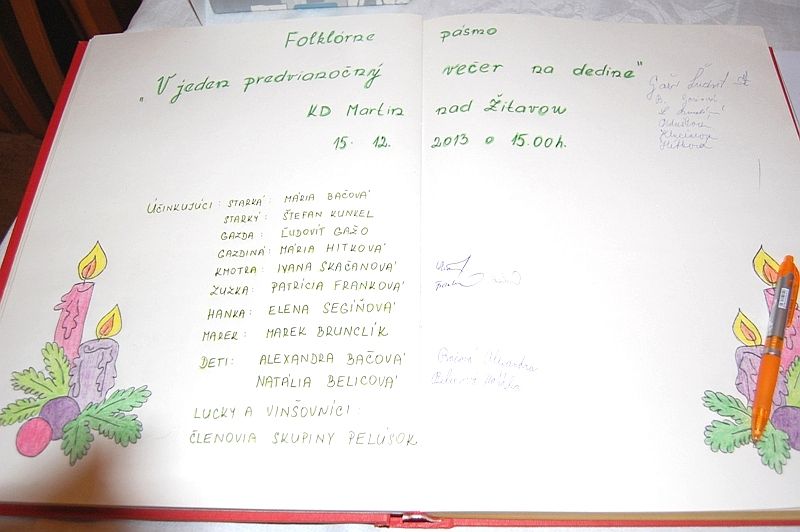 Folklórne pásmo
"V jeden predvianočný večer na dedine"
KD Martin nad Žitavou
15. 12. 2013 o 15.00h.
ÚČINKUJÚCI: STARKÁ: MÁRIA BAČOVÁ
STARKÝ: ŠTEFAN KUNKEL
GAZDA: ĽUDOVÍT GAŽO
GAZDINÁ: MÁRIA HITKOVÁ
KMOTRA: IVANA SKAČANOVÁ
ZUZKA: PATRÍCIA FRANKOVÁ
HANKA: ELENA SEGIŇOVÁ
MAREK: MAREK BRUNCLÍK
DETI: ALEXANDRA BAČOVÁ
NATÁLIA BELICOVÁ
LUCKY A VINŠOVNÍCI:
ČLENOVIA SKUPINY PELÚSOK